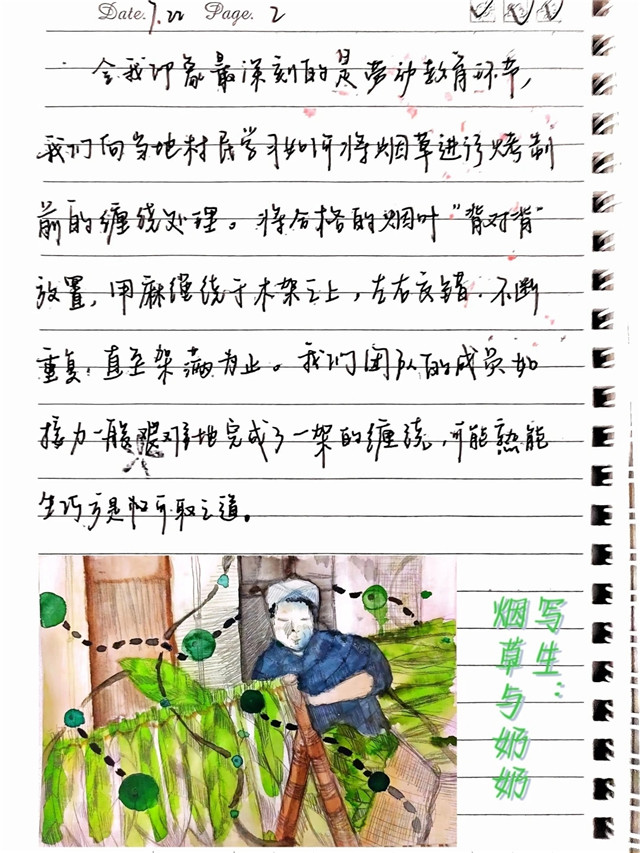 Date. 7.22 Page. 2
令我印象最深刻的是劳动教育环节,
我们向当地村民学习如何将烟草进行烤制
前的缠绕处理。将合格的烟叶“背对背”
放置,用麻绳绕于木架之上,左右交错.不断
重复,直至架满为止。我们团队的成员如
接力一般艰难地完成了一架的缠绕,可能熟能
生巧方是可取之道。
写生:
烟草与奶奶